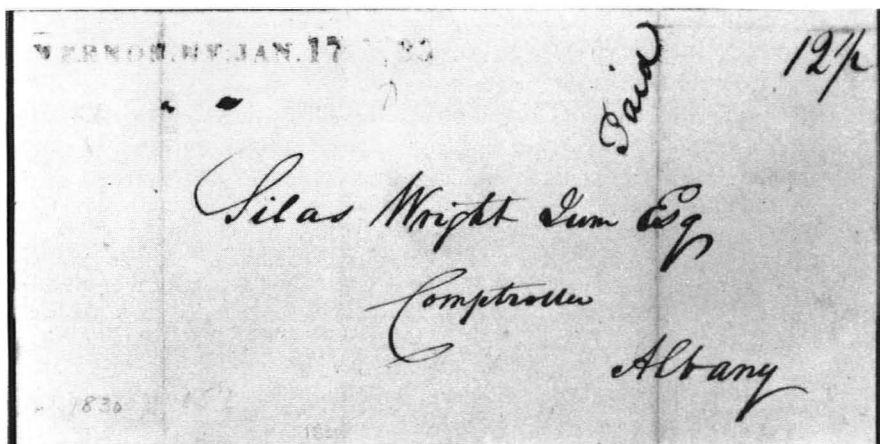 VERNON.NY.JAN.17
Paid
12½
Silas Wright Jum Esq
Comptroller
Albany
1830